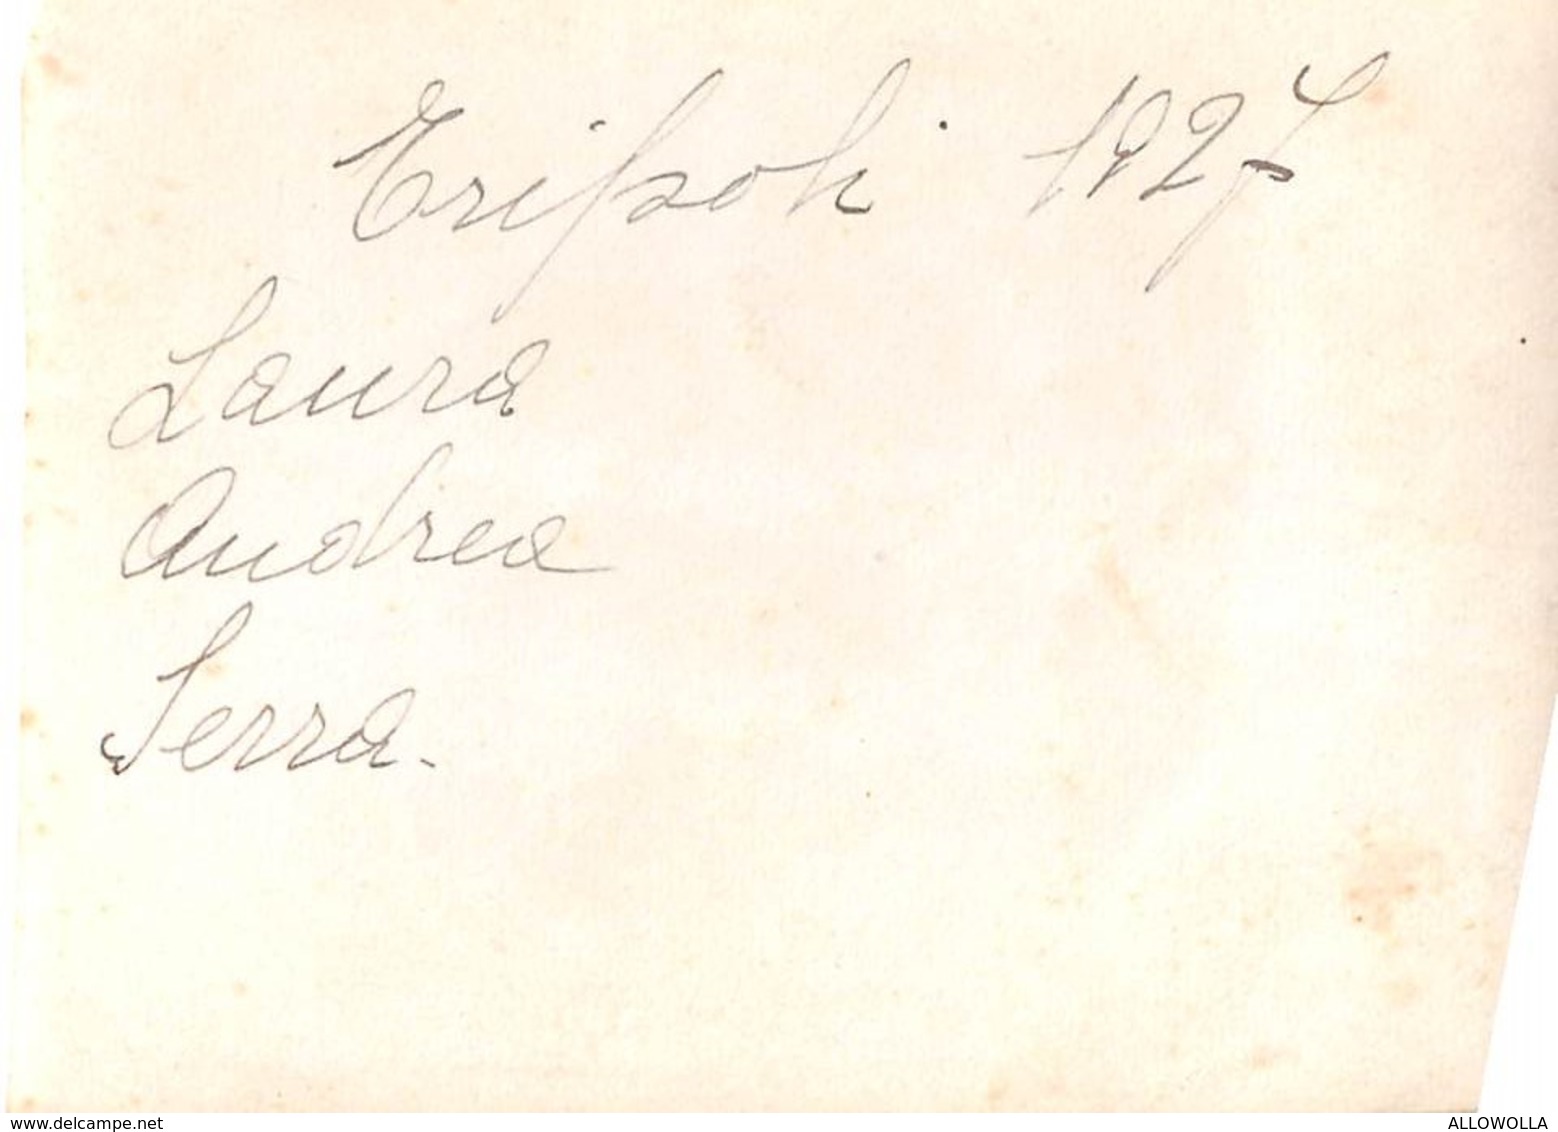 Tripoli 1927
Laura
Andrea
Serra.
www.delcampe.net
ALLOWOLLA